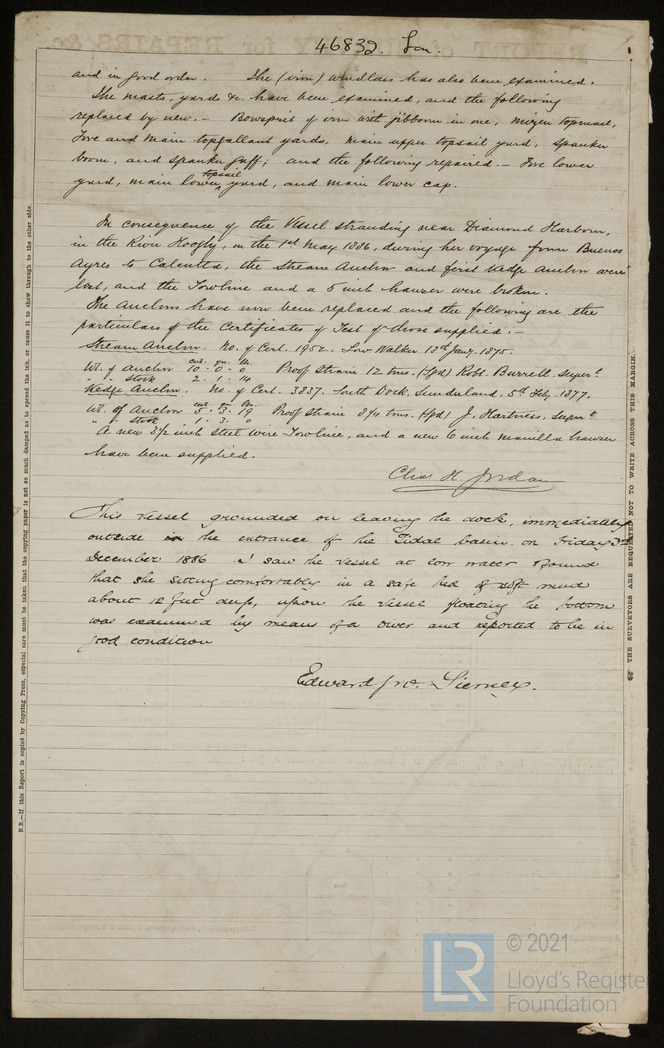 46832. Lon.
and in good order. The (iron) windlass has also been examined.
The masts, yards &c have been examined, and the following
replaced by new. – Bowsprit of iron with jibboom in one, mizen topmast,
Fore and Main topgallant yards, main upper topsail yard, spanker
boom, and spanker gaff; and the following repaired. – Fore lower
yard, main lower topsail yard, and main lower cap.
In consequence of the Vessel stranding near Diamond Harbour,
in the River Hoogly, on the 1st May 1886, during her voyage from Buenos
Ayres to Calcutta, the Stream Anchor and first kedge anchor were
lost, and the Towline and a 5 inch hawser were broken.
The Anchors have now been replaced and the following are the
particulars of the Certificates of Test of those supplied. –
Stream Anchor. No. of Cert. 1952. Low Walker 13th Jany. 1875.
cwt. qrs. lbs.
Wt. of Anchor 10 . 0 . 0 Proof Strain 12 tons. (Sgd) Robt. Burrell. Supert.
" " Stock 2 . 1 . 14
Kedge Anchor. No. of Cert. 3837. South Dock, Sunderland. 5th Feby. 1877.
cwt. qrs. lbs.
Wt. of Anchor 5 . 3 . 19 Proof Strain 8 1/4 tons. (Sgd) J. Hartness. Supert.
" " Stock 1 . 3 . 0
A new 3 1/2 inch Steel Wire Towline, and a new 6 inch manilla hawser
have been supplied.
Chas. H. Jordan
This vessel grounded on leaving the dock, immediately
outside the entrance of the Tidal basin on Friday 3rd
December 1886 I saw the vessel at low water & found
that she sitting comfortably in a safe bed of soft mud
about 12 feet deep, upon the vessel floating the bottom
was examined by means of a diver and reported to be in
good condition
Edward Jno.
N.B.—If this Report is copied by Copying Press, especial care must be taken that the copying paper is not so much damped as to spread the ink, or cause it to show through to the other side.
THE SURVEYORS ARE REQUESTED NOT TO WRITE ACROSS THIS MARGIN.
LR
© 2021
Lloyd's Register
Foundation